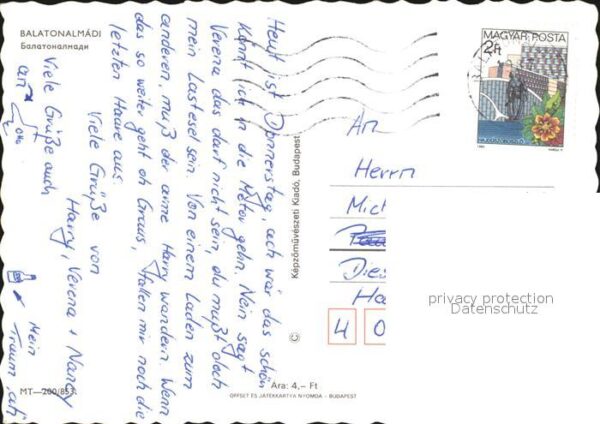 BALATONALMÁDI
Балатоналмади
Heut ist Donnerstag, ach wär das schön
könnt ich in die Metor gehn. Nein sagt
Verena das darf nicht sein, du mußt doch
mein Lastesel sein. Von einem Laden zum
anderen, muß der arme Harry wandern. Wenn
das so weiter geht oh Graus, fallen mir noch die
letzten Haare aus.
Viele Grüße von
Harry, Verena + Nancy
Viele Grüße auch
an
Mein
Traum
MT—200/853.
Képzőművészeti Kiadó, Budapest
C
Ára: 4,– Ft
OFFSET ÉS JÁTÉKKÁRTYA NYOMDA – BUDAPEST
MAGYAR POSTA
2Ft
An
Herrn
Mich
Die
Ha
4 0
privacy protection
Datenschutz